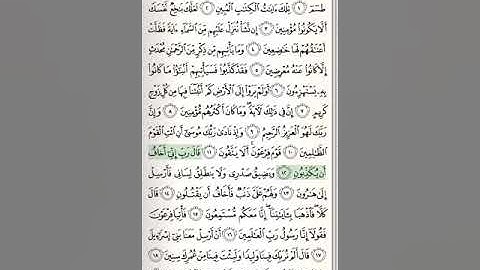 طسٓمٓ ١ تِلْكَ ءَايَٰتُ ٱلْكِتَٰبِ ٱلْمُبِينِ ٢ لَعَلَّكَ بَٰخِعٌ نَّفْسَكَ
أَلَّا يَكُونُوا۟ مُؤْمِنِينَ ٣ إِن نَّشَأْ نُنَزِّلْ عَلَيْهِم مِّنَ ٱلسَّمَآءِ ءَايَةً فَظَلَّتْ
أَعْنَٰقُهُمْ لَهَا خَٰضِعِينَ ٤ وَمَا يَأْتِيهِم مِّن ذِكْرٍ مِّنَ ٱلرَّحْمَٰنِ مُحْدَثٍ
إِلَّا كَانُوا۟ عَنْهُ مُعْرِضِينَ ٥ فَقَدْ كَذَّبُوا۟ فَسَيَأْتِيهِمْ أَنۢبَٰٓؤُا۟ مَا كَانُوا۟
بِهِۦ يَسْتَهْزِءُونَ ٦ أَوَلَمْ يَرَوْا۟ إِلَى ٱلْأَرْضِ كَمْ أَنۢبَتْنَا فِيهَا مِن كُلِّ زَوْجٍ
كَرِيمٍ ٧ إِنَّ فِى ذَٰلِكَ لَءَايَةً وَمَا كَانَ أَكْثَرُهُم مُّؤْمِنِينَ ٨ وَإِنَّ
رَبَّكَ لَهُوَ ٱلْعَزِيزُ ٱلرَّحِيمُ ٩ وَإِذْ نَادَىٰ رَبُّكَ مُوسَىٰٓ أَنِ ٱئْتِ ٱلْقَوْمَ
ٱلظَّٰلِمِينَ ١٠ قَوْمَ فِرْعَوْنَ أَلَا يَتَّقُونَ ١١ قَالَ رَبِّ إِنِّىٓ أَخَافُ
أَن يُكَذِّبُونِ ١٢ وَيَضِيقُ صَدْرِى وَلَا يَنطَلِقُ لِسَانِى فَأَرْسِلْ
إِلَىٰ هَٰرُونَ ١٣ وَلَهُمْ عَلَىَّ ذَنۢبٌ فَأَخَافُ أَن يَقْتُلُونِ ١٤ قَالَ
كَلَّا فَٱذْهَبَا بِـَٔايَٰتِنَآ إِنَّا مَعَكُم مُّسْتَمِعُونَ ١٥ فَأْتِيَا فِرْعَوْنَ
فَقُولَآ إِنَّا رَسُولُ رَبِّ ٱلْعَٰلَمِينَ ١٦ أَنْ أَرْسِلْ مَعَنَا بَنِىٓ إِسْرَٰٓءِيلَ
١٧ قَالَ أَلَمْ نُرَبِّكَ فِينَا وَلِيدًا وَلَبِثْتَ فِينَا مِنْ عُمُرِكَ سِنِينَ ١٨